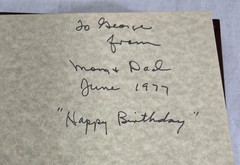 To George
from
Mom & Dad
June 1977
"Happy Birthday"